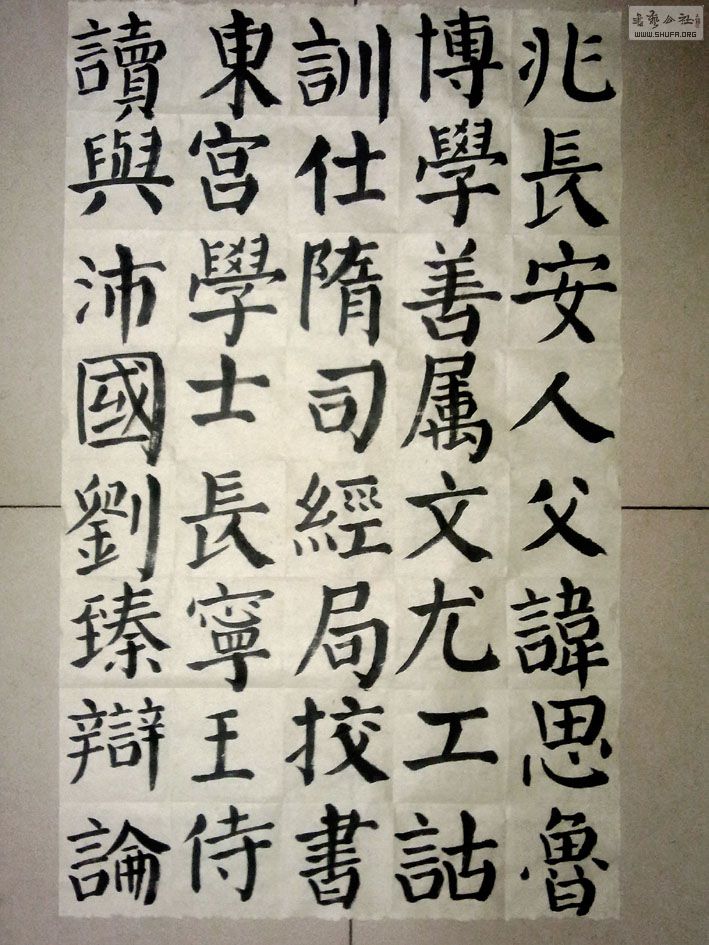 兆長安人父諱思魯
博學善属文尤工詁
訓仕隋司經局挍書
東宮學士長寧王侍
讀與沛國劉臻辯論
書藝公社
WWW.SHUFA.ORG